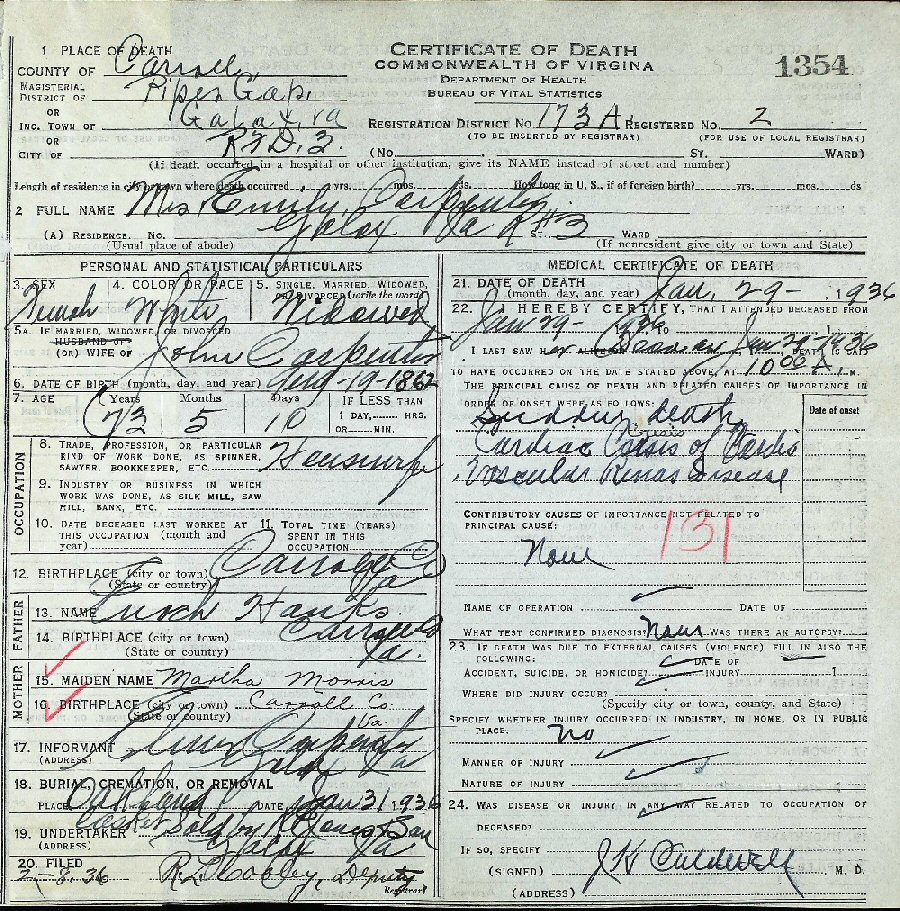 CERTIFICATE OF DEATH
COMMONWEALTH OF VIRGINIA
DEPARTMENT OF HEALTH
BUREAU OF VITAL STATISTICS
1354
1 PLACE OF DEATH
COUNTY OF Carroll
MAGISTERIAL DISTRICT OF Piper Gap.
OR
INC. TOWN OF Galax, Va
OR
CITY OF R F D. 3.
REGISTRATION DISTRICT NO. 173A. REGISTERED NO. 2
(TO BE INSERTED BY REGISTRAR) (FOR USE OF LOCAL REGISTRAR)
(No. ST. WARD)
(If death occurred in a hospital or other institution, give its NAME instead of street and number)
Length of residence in city or town where death occurred yrs. mos. ds. How long in U. S., if of foreign birth? yrs. mos. ds
2 FULL NAME Mrs Emily Carpenter
(A) RESIDENCE. No. Galax Va R #3 ST. WARD
(Usual place of abode) (If nonresident give city or town and State)
PERSONAL AND STATISTICAL PARTICULARS
3. SEX 4. COLOR OR RACE 5. SINGLE, MARRIED, WIDOWED, OR DIVORCED (write the word)
White Widowed
5A. IF MARRIED, WIDOWED, OR DIVORCED
HUSBAND OF
(OR) WIFE OF John Carpenter
6. DATE OF BIRTH (month, day, and year) Aug-19-1862
7. AGE Years Months Days IF LESS THAN
1 DAY, HRS.
OR MIN.
73 5 10
OCCUPATION
8. TRADE, PROFESSION, OR PARTICULAR
KIND OF WORK DONE, AS SPINNER,
SAWYER, BOOKKEEPER, ETC. Housewife
9. INDUSTRY OR BUSINESS IN WHICH
WORK WAS DONE, AS SILK MILL, SAW
MILL, BANK, ETC.
10. DATE DECEASED LAST WORKED AT
THIS OCCUPATION (month and
year)
11. TOTAL TIME (YEARS)
SPENT IN THIS
OCCUPATION
12. BIRTHPLACE (city or town) Carroll Co
(State or country) Va
FATHER
13. NAME Enoch Hanks
14. BIRTHPLACE (city or town) Carroll Co
(State or country) Va.
MOTHER
15. MAIDEN NAME Martha Morris
16. BIRTHPLACE (city or town) Carroll Co.
(State or country) Va
17. INFORMANT Elmer Carpenter
(ADDRESS) Galax Va
18. BURIAL, CREMATION, OR REMOVAL
PLACE Oakland DATE Jan 31 1936
19. UNDERTAKER Casket Sold by
(ADDRESS) Galax Va
20. FILED
2-8-36 Deputy
Registrar
MEDICAL CERTIFICATE OF DEATH
21. DATE OF DEATH
(month, day, and year) Jan. 29- , 1936
22. I HEREBY CERTIFY, THAT I ATTENDED DECEASED FROM
Jan 29- TO 1
I LAST SAW H er Jan 29-1936 DEATH IS SAID
TO HAVE OCCURRED ON THE DATE STATED ABOVE, AT 10 00 A. M.
THE PRINCIPAL CAUSE OF DEATH AND RELATED CAUSES OF IMPORTANCE IN
ORDER OF ONSET WERE AS FOLLOWS:
Date of onset
Sudden death
Crisis
Cardiac Crisis of Cardio
Vascular Renal Disease
CONTRIBUTORY CAUSES OF IMPORTANCE NOT RELATED TO
PRINCIPAL CAUSE:
131
None
NAME OF OPERATION DATE OF
WHAT TEST CONFIRMED DIAGNOSIS? None WAS THERE AN AUTOPSY?
23. IF DEATH WAS DUE TO EXTERNAL CAUSES (VIOLENCE) FILL IN ALSO THE
FOLLOWING:
ACCIDENT, SUICIDE, OR HOMICIDE? DATE OF INJURY 1
WHERE DID INJURY OCCUR?
(Specify city or town, county, and State)
SPECIFY WHETHER INJURY OCCURRED IN INDUSTRY, IN HOME, OR IN PUBLIC
PLACE. no
MANNER OF INJURY
NATURE OF INJURY
24. WAS DISEASE OR INJURY IN ANY WAY RELATED TO OCCUPATION OF
DECEASED?
IF SO, SPECIFY
(SIGNED) J K Caldwell M. D.
(ADDRESS)